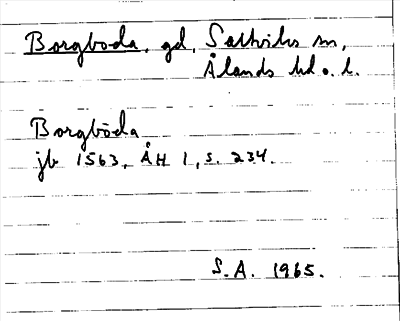 Borgboda, gd, Saltviks sn,
Ålands hd o. l.
Borgböda
jb 1563, ÅH 1, s. 234.
S.A. 1965.